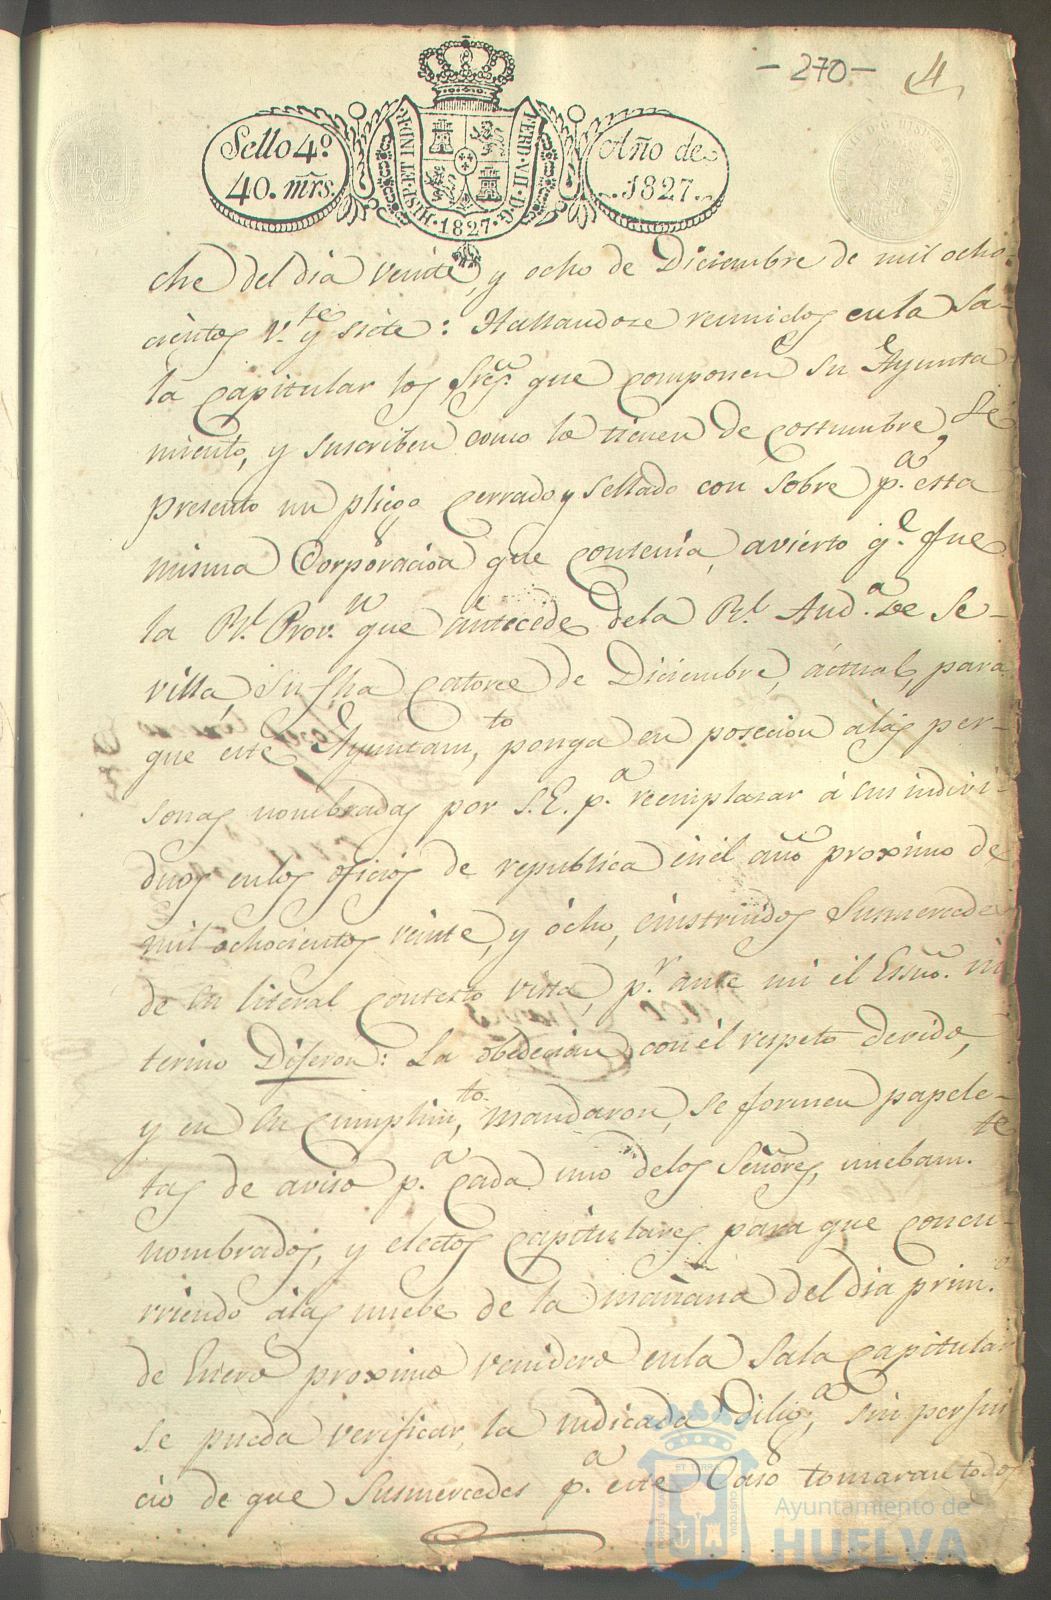 - 270 - 4
Sello 4º
40. mrs.
HISP. ET IND. R.
FERD. VII. D. G.
1827
Año de
1827.
che del dia veinte, y ocho de Diciembre de mil ocho-
cientos v.te y siete: Hallandose reunidos en la Sa-
la capitular los Sres. que componen su Ayunta
miento, y suscriben como lo tienen de costumbre, se
presento un pliego cerrado y sellado con sobre p.a esta
misma Corporacion que contenia, avierto q.e fue
la Rl. Prov.n que antecede de la Rl. Aud.a de Se-
villa, su fha catorce de Diciembre, actual, para
que este Ayuntam.to ponga en posecion à las per-
sonas nombradas por S.E. p.a reemplasar à sus indivi-
duos en los oficios de republica en el año proximo de
mil ochocientos veinte, y ocho, è instruidos Susmercedes
de su literal contesto, vista, p.r ante mi el Essño. in
terino Dijeron: La obedecian con el respeto devido,
y en su cumplim.to mandaron, se formen papele-
tas de aviso p.a cada uno de los Señores, nuebam.te
nombrados, y electos capitulares para que concu-
rriendo à las nuebe de la mañana del dia prim.o
de Enero proximo venidero en la Sala capitular
se pueda verificar, la indicada dilig.a sin perjui
cio de que Susmercedes p.a este Caso tomaran todos
Ayuntamiento de
HUELVA